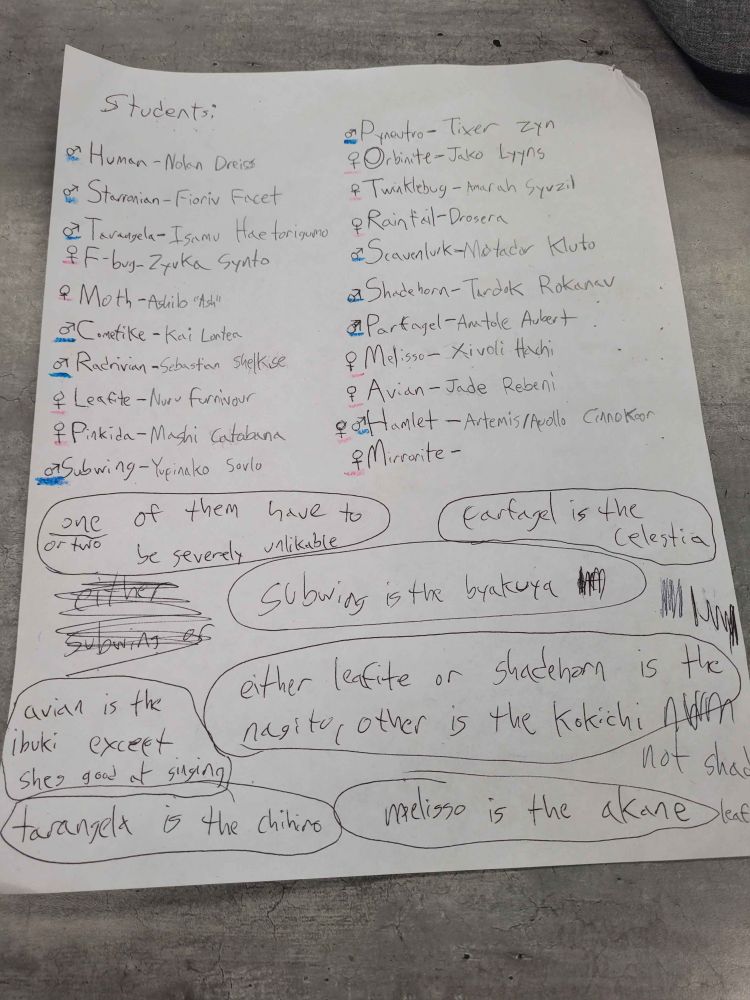 Students:
♂ Human - Nolan Dreiss
♂ Starronian - Fioriv Facet
♂ Tarangela - Isamu Haetorigumo
♀ F-bug - Zyuka Synto
♀ Moth - Ashib "Ash"
♂ Cometike - Kai Lontea
♂ Radrivian - Sebastian Shelkise
♀ Leafite - Nuru Furnivour
♀ Pinkida - Mashi Catabana
♂ Subwing - Yupinako Sovlo
♂ Pyneutro - Tixer Zyn
♀ Orbinite - Jako Lyyns
♀ Twinklebug - Amarah Syvzil
♀ Rainfail - Drosera
♂ Scavenlurk - Motador Kluto
♂ Shadehorn - Tardok Rokanav
♂ Parfagel - Anatole Aubert
♀ Melisso - Xivoli Hachi
♀ Avian - Jade Rebeni
♀♂ Hamlet - Artemis/Apollo Cinnokoor
♀ Mirrorite -
one of them have to
or two be severely unlikable
Farfagel is the
Celestia
either
subwing or
subwing is the byakuya
either leafite or shadehorn is the
nagito, other is the Kokichi
not shad
leaf
avian is the
ibuki except
shes good at singing
tarangela is the chihiro
melisso is the akane